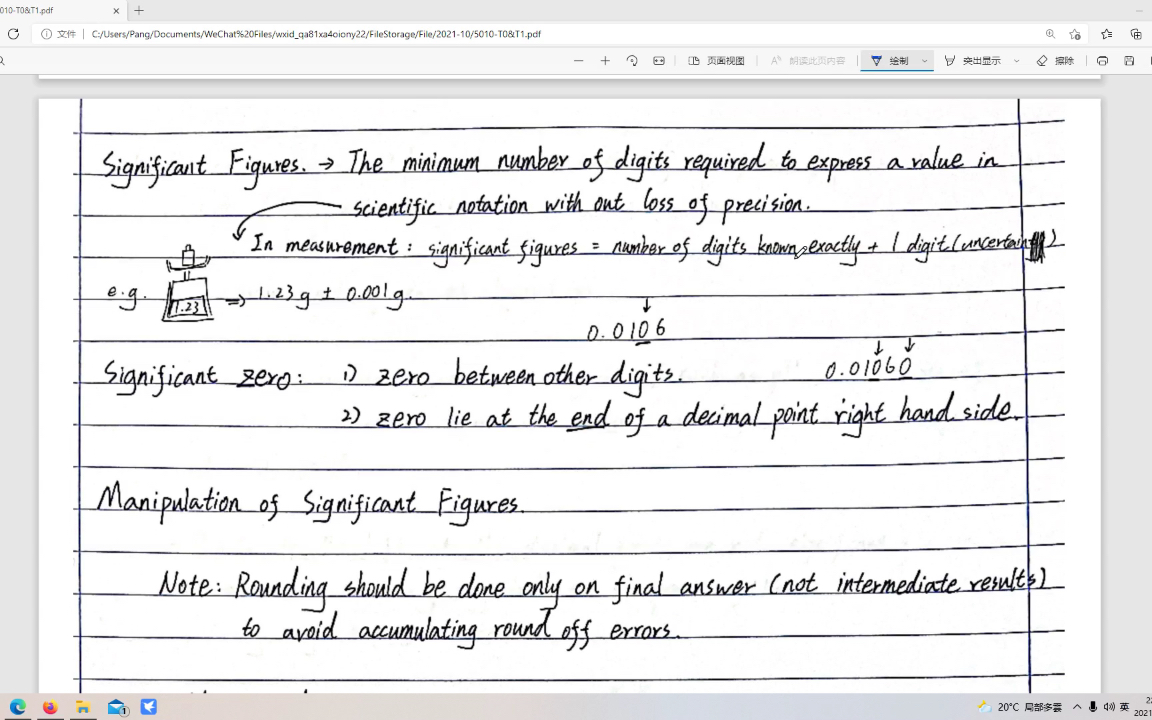 010-T0&T1.pdf
文件 C:/Users/Pang/Documents/WeChat%20Files/wxid_qa81xa4oiony22/FileStorage/File/2021-10/5010-T0&T1.pdf
页面视图 朗读此页内容 绘制 突出显示 擦除
Significant Figures. → The minimum number of digits required to express a value in
scientific notation with out loss of precision.
In measurement : significant figures = number of digits known exactly + 1 digit (uncertain)
e.g. 1.23 ⇒ 1.23g ± 0.001g.
0.0106
0.01060
Significant zero: 1) zero between other digits.
2) zero lie at the end of a decimal point right hand side.
Manipulation of Significant Figures.
Note: Rounding should be done only on final answer (not intermediate results)
to avoid accumulating round off errors.
20°C 局部多雲 英
2021